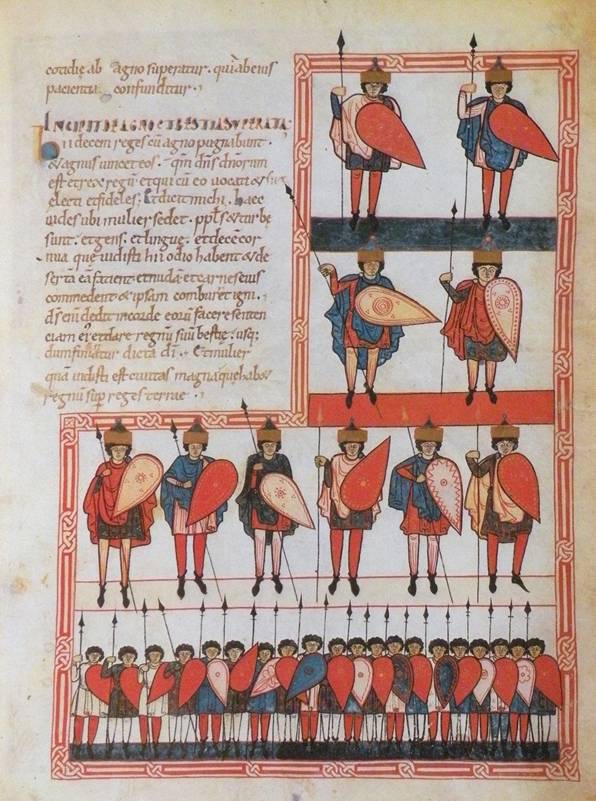 cotidiẹ ab agno superatur. qui abeius
pacientia confunditur.
INCIPIT DE AGNO ET BESTIA SVPERATA
ii decem reges cū agno pugnabunt.
& agnus uincet eos. qm̄ dn̄s dnorum
est et rex regū. et qui cū eo uocati &
electi et fideles. Et dicit michi. haec
uides ubi mulier sedet. ppl̄s & turbẹ
sunt. et gens. et lingue. et decē cor
nua quẹ uidisti hii odio habent & de
sertā eā facient et nudā et carnes eius
commedent & ipsam comburet igni.
dš enī dedit incorde eorū facere senten
ciam et dare regnū suū bestiẹ. usq;
dum finiātur dicta dī. Et mulier
quā uidisti est ciuitas magna quẹ hab&
regnū sup reges terrae.